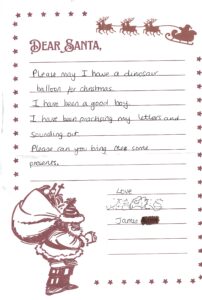 DEAR SANTA,
Please may I have a dinosaur
balloon for christmas.
I have been a good boy.
I have been practising my letters and
sounding out.
Please can you bring me some
presents.
Love
James